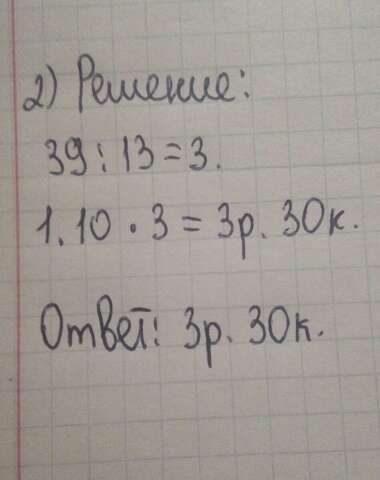 2) Решение:
39 : 13 = 3.
1.10 · 3 = 3р. 30к.
Ответ: 3р. 30к.